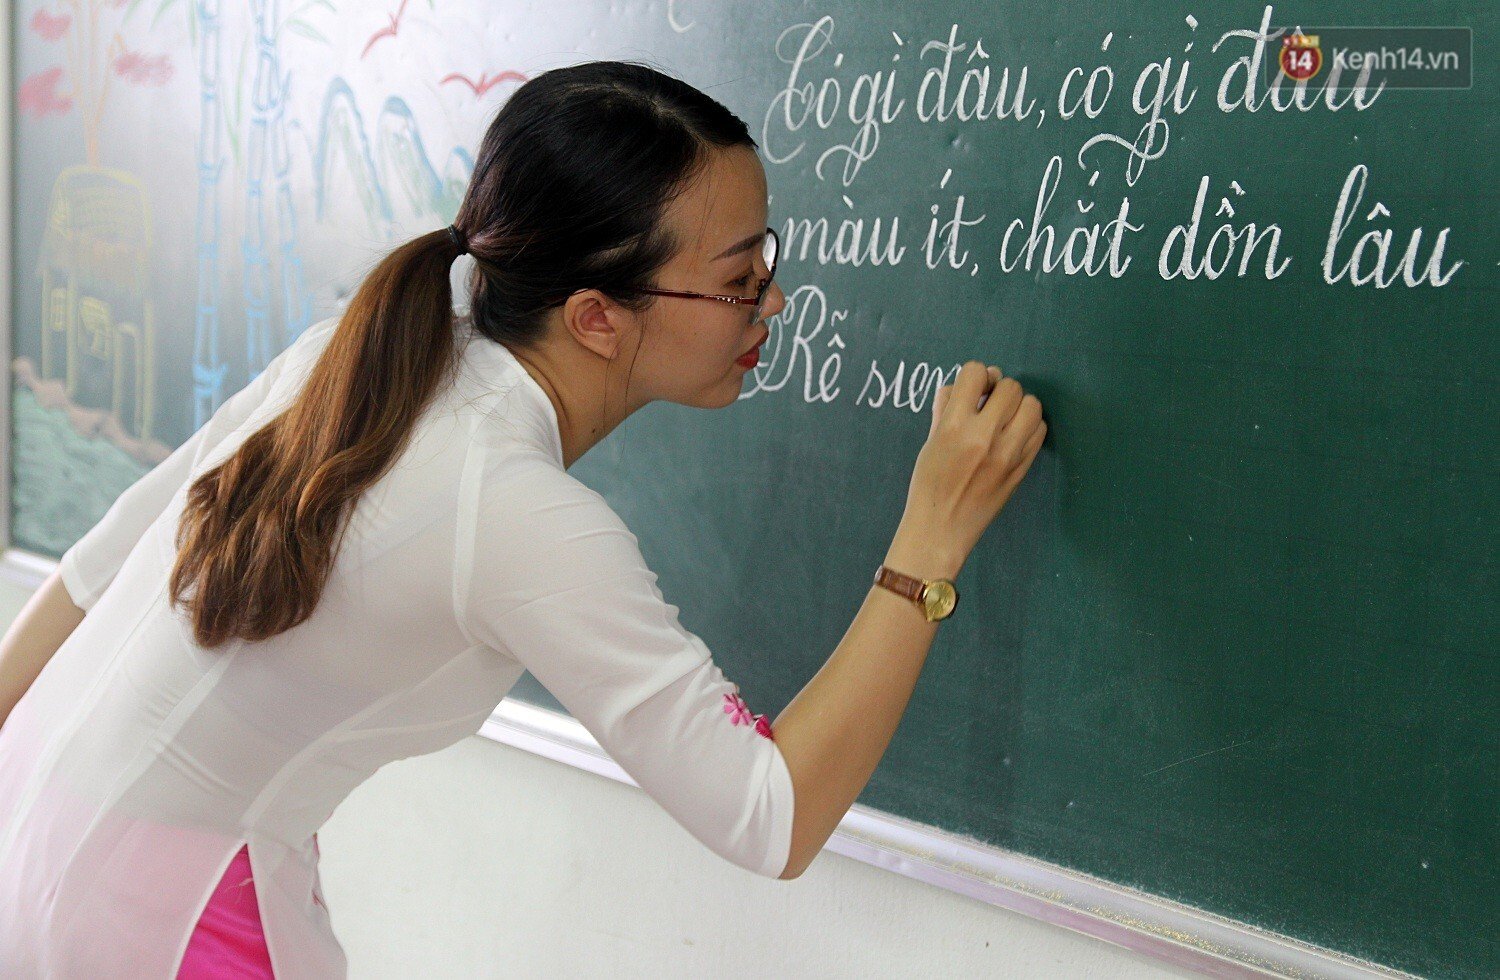 Có gì đâu, có gì đâu
màu ít, chắt dồn lâu
Rễ sien
14 Kenh14.vn